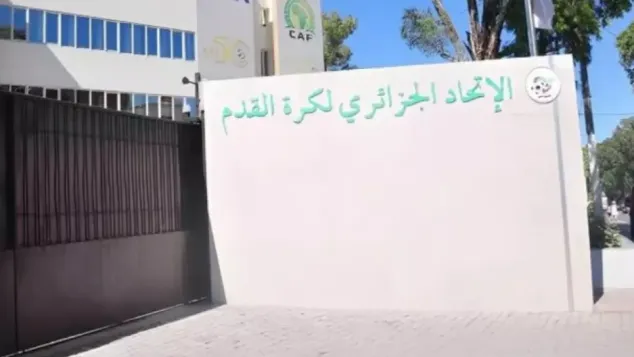 CAF
الإتحاد الجزائري لكرة القدم